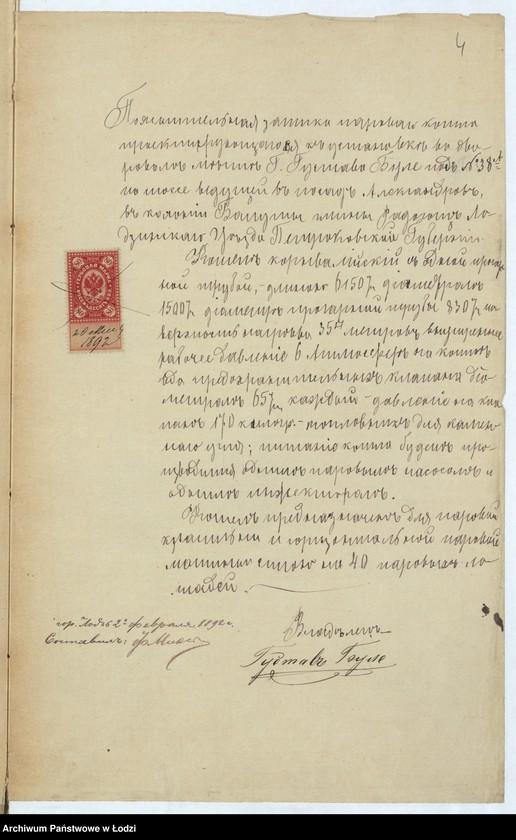 4
Пояснительная записка паровая котла
проектирующагося къ установкѣ во дво-
ровомъ мѣстѣ Г. Густава Буле подъ № 38 А
по шоссе ведущей въ посадъ Александровъ,
въ колонiи Балуты гмины Радогощъ Ло-
дзинскаго Уѣзда Петроковской Губернiи.
Котелъ корнвалiйскiй съ одной прогар-
ной трубой, - длиною 6150 діаметромъ
1500 діаметръ прогарной трубы 830 по-
верхность нагрѣва 35 метровъ
рабочее давленiе 6 Атмосферъ на котлѣ
два предохранительныхъ клапана дiа-
метромъ 65 каждый - давленiе на кла-
панъ 170 килогр. - топливникъ для камен-
наго угля; питанiе котла будетъ про-
изводится однимъ паровымъ насосомъ и
однимъ инжекторомъ.
Котелъ предназначенъ для паровой
красильни и горизонтальной паровой
машины силою на 40 паровыхъ ло-
шадей.
1892
гор. Лодзь 2 февраля 1892 г.
Составилъ:
Владѣлецъ
Густавъ Буле
Archiwum Państwowe w Łodzi